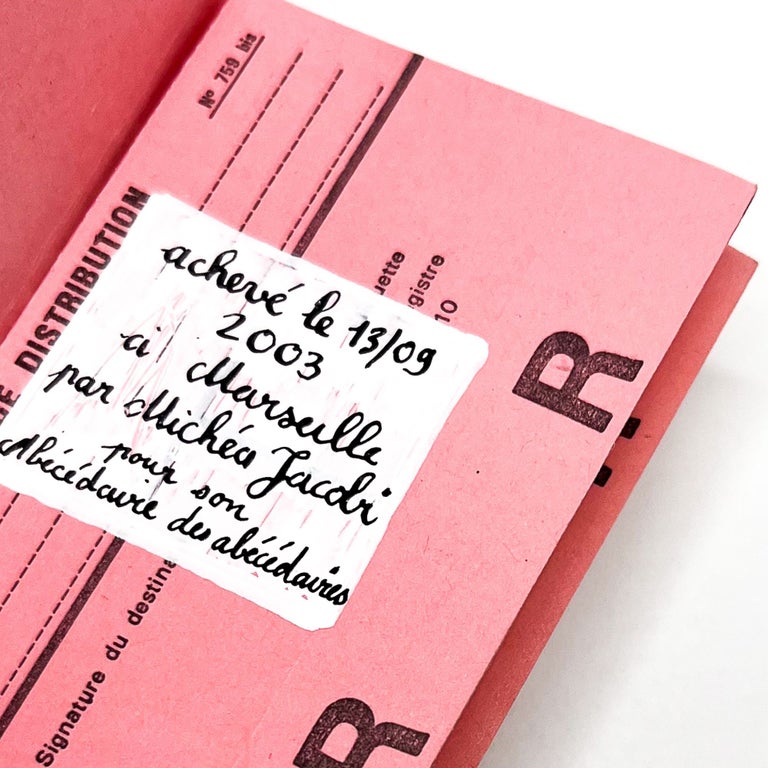 Nº 759 bis
DISTRIBUTION
achevé le 13/09
2003
à Marseille
par Michéa Jacobi
pour son
Abécédaire des abécédaires
10
R
Signature du
R